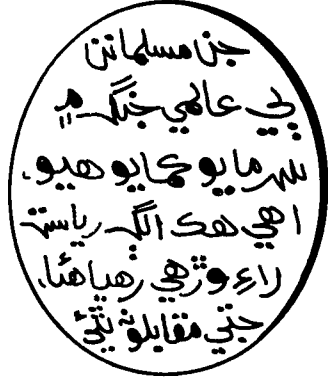 جن مسلمانن
ٻي عالمي جنگ ۾
سرمايو ڪمايو هيو،
اهي هڪ الڳ رياست
لاءِ وڙهي رهيا هئا،
جتي مقابلو نه ٿئي